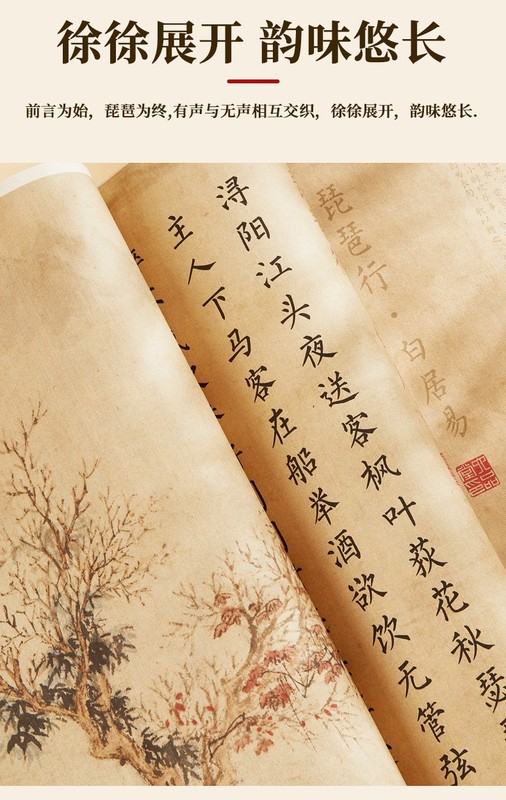 徐徐展开 韵味悠长
前言为始，琵琶为终,有声与无声相互交织，徐徐展开，韵味悠长.
琵琶行·白居易
浔阳江头夜送客枫叶荻花秋瑟
主人下马客在船举酒欲饮无管弦